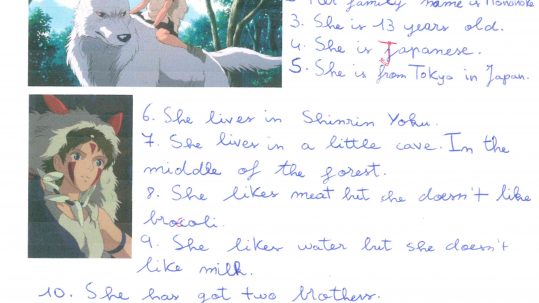 Her family name is Mononoke
3. She is 13 years old.
4. She is Japanese.
5. She is from Tokyo in Japan.
6. She lives in Shinrin Yoku.
7. She lives in a little cave. In the
middle of the forest.
8. She likes meat but she doesn't like
brocoli.
9. She likes water but she doesn't
like milk.
10. She has got two brothers.